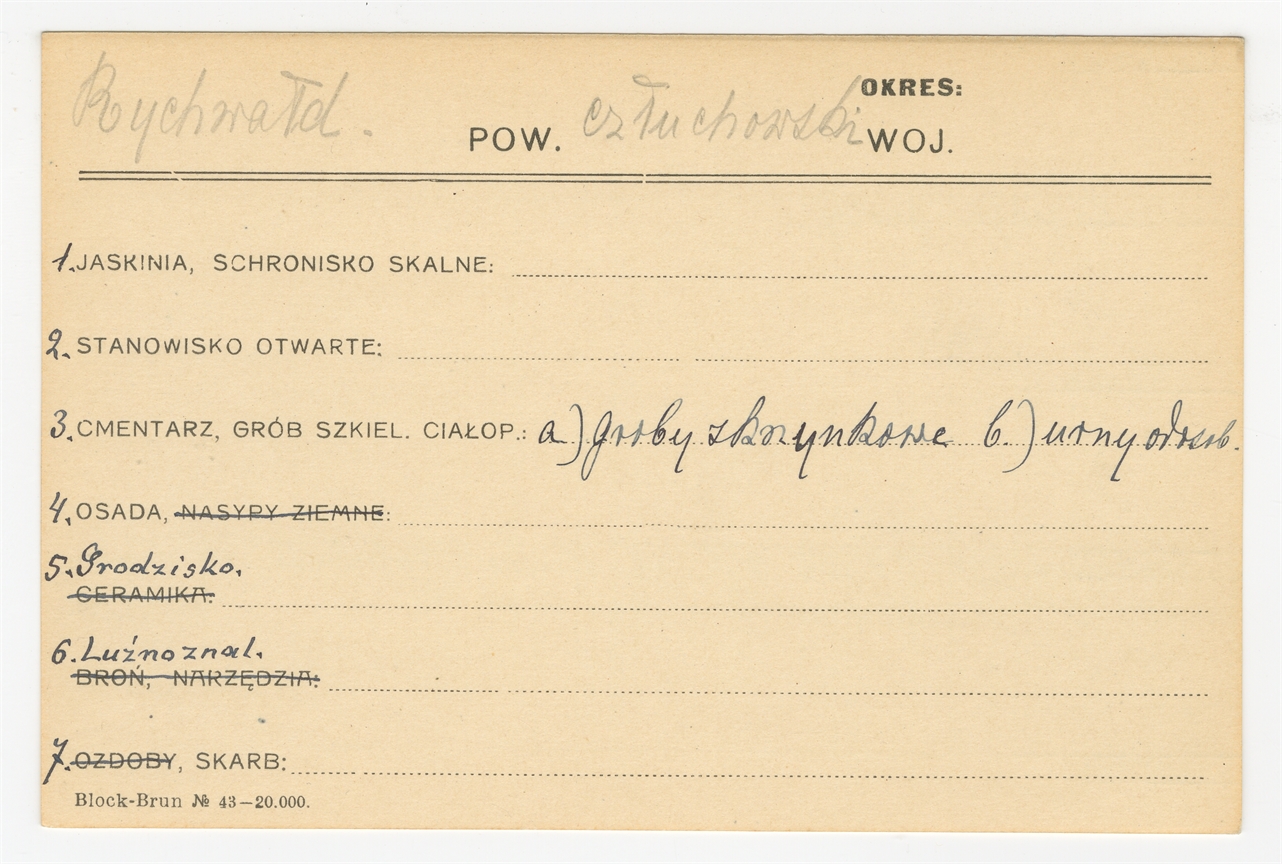 Rychwałd. OKRES:
POW. człuchowski WOJ.
1. JASKINIA, SCHRONISKO SKALNE:
2. STANOWISKO OTWARTE:
3. CMENTARZ, GRÓB SZKIEL. CIAŁOP.: a) groby skrzynkowe b.) urny odosob.
4. OSADA, NASYPY ZIEMNE:
5. Grodzisko.
CERAMIKA:
6. Luźno znal.
BROŃ, NARZĘDZIA:
7. OZDOBY, SKARB:
Block-Brun № 43—20.000.